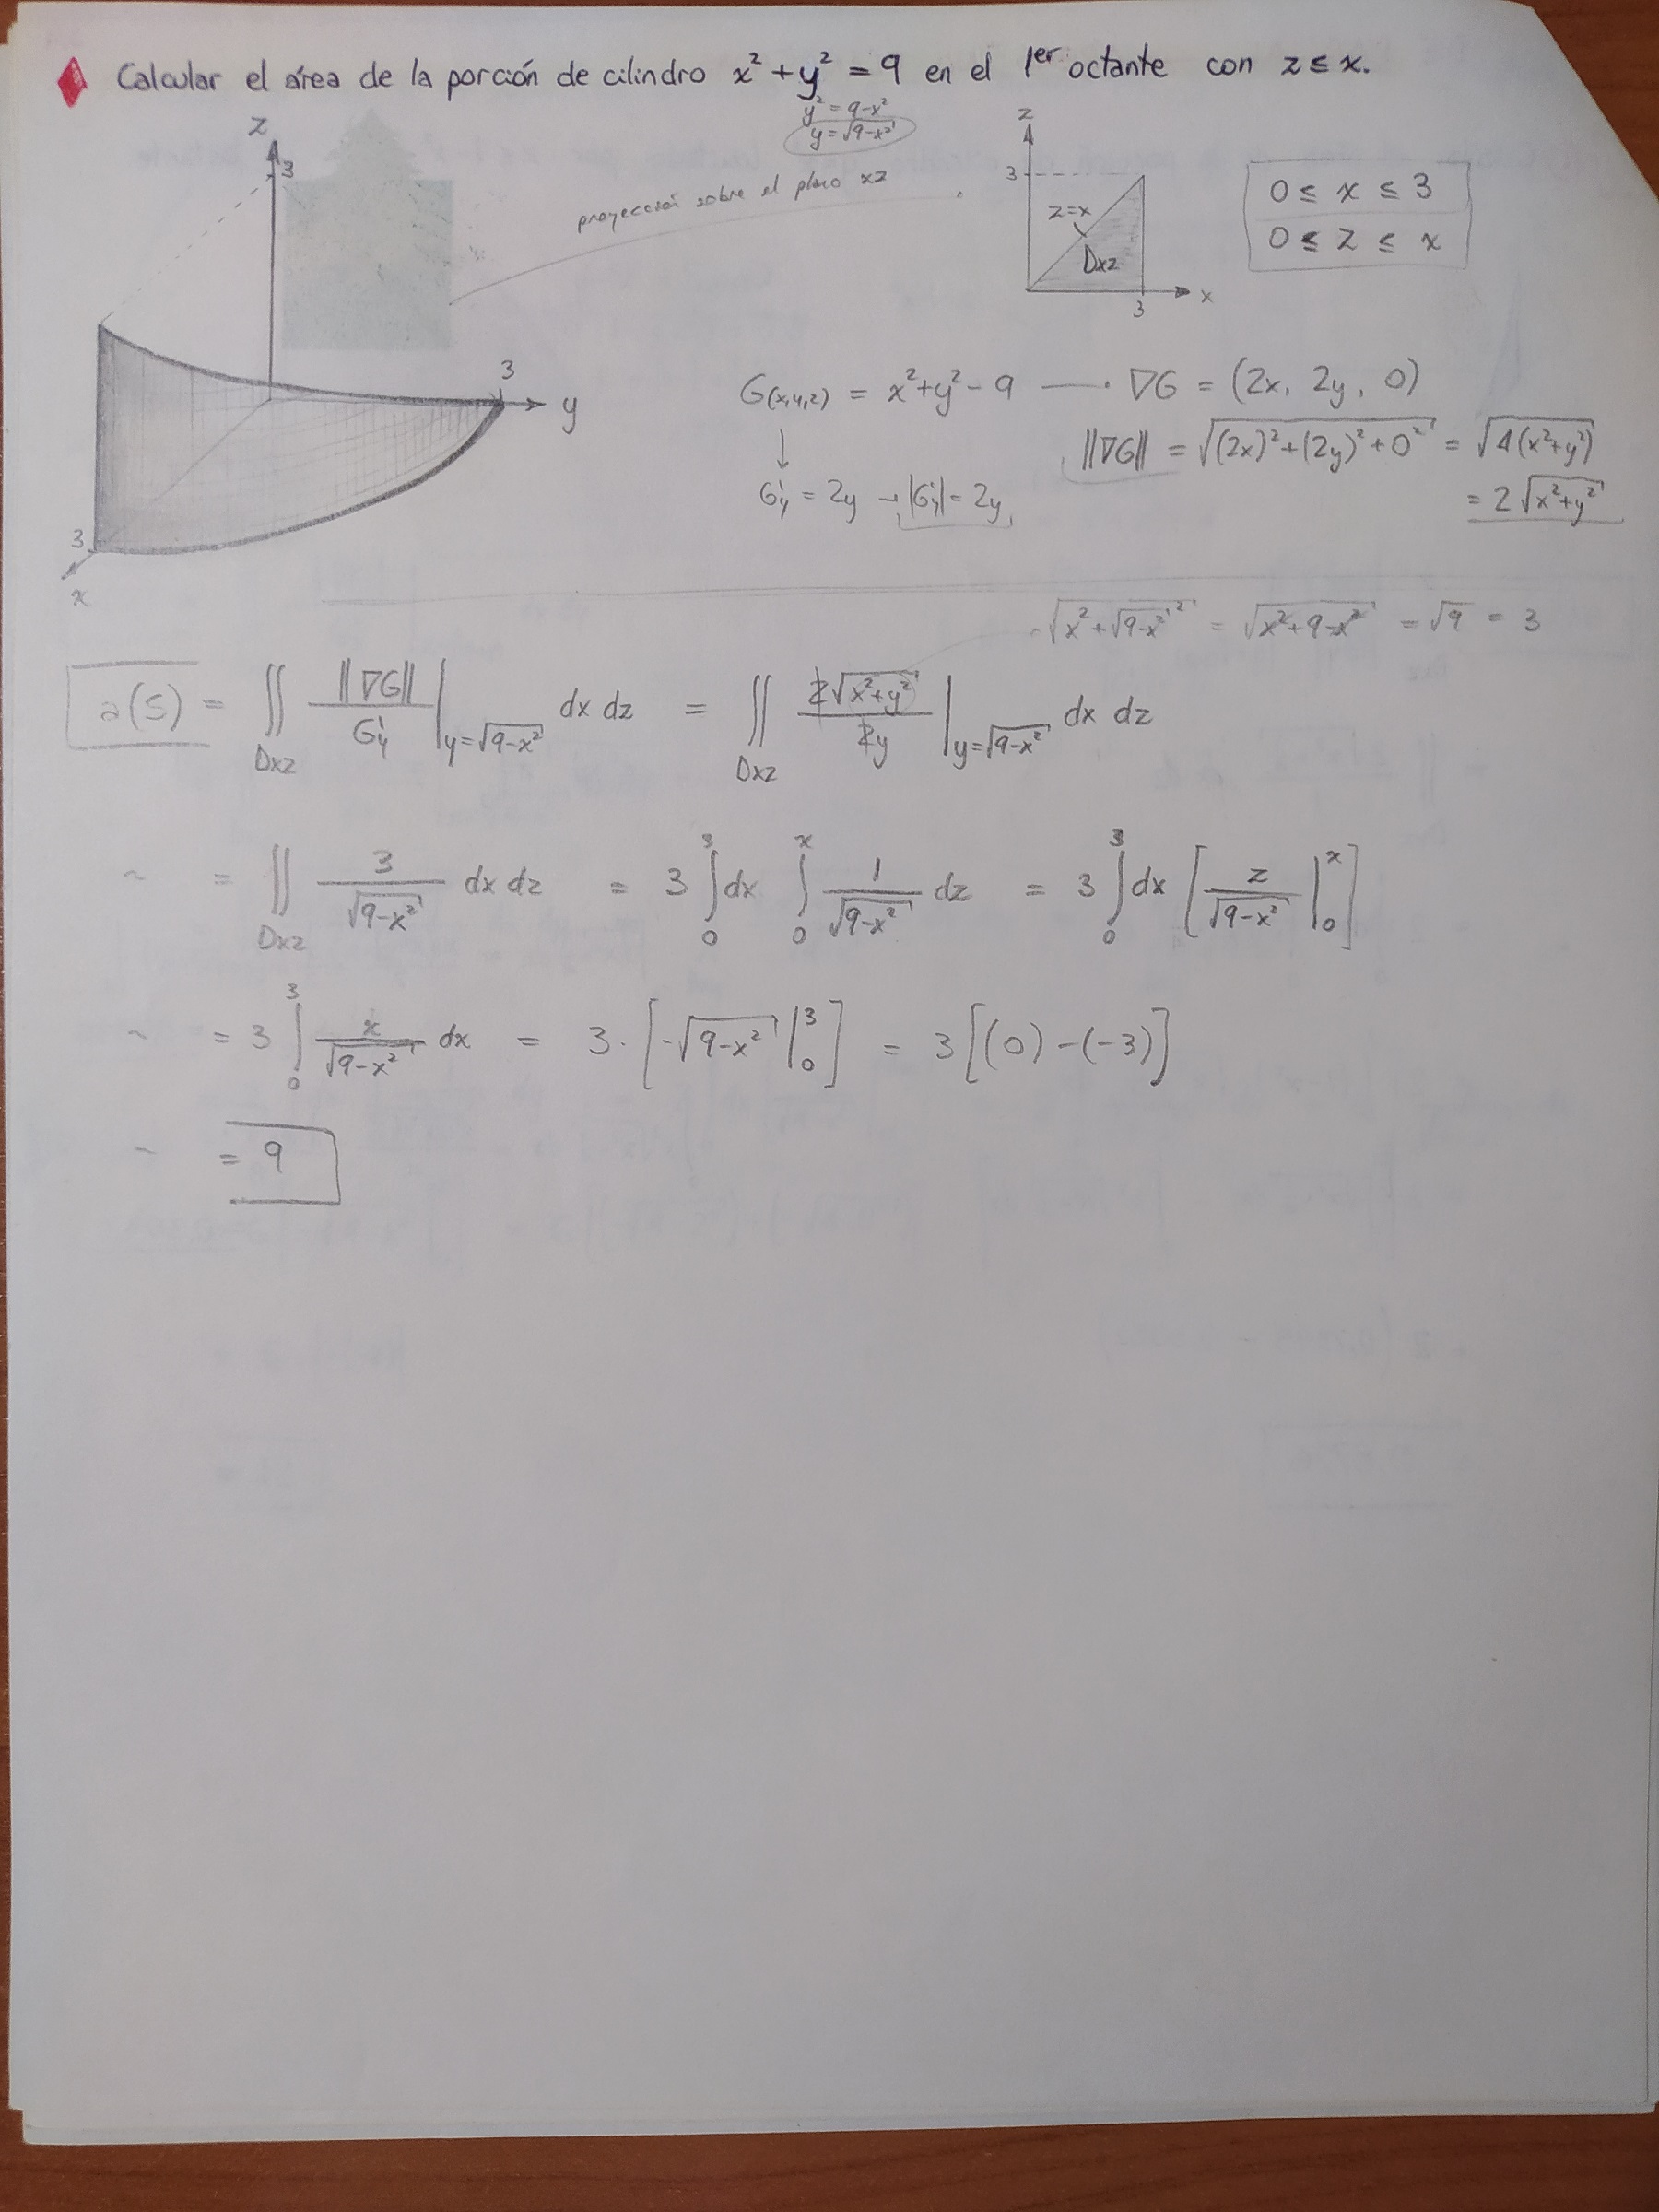 Calcular el área de la porción de cilindro x² + y² = 9 en el 1er octante con z ≤ x.
y² = 9-x²
y = √(9-x²)
z
3
proyección sobre el plano xz
z
3
z=x
Dxz
3
x
0 ≤ x ≤ 3
0 ≤ z ≤ x
3
y
3
x
G(x,y,z) = x²+y²-9 → ∇G = (2x, 2y, 0)
||∇G|| = √((2x)²+(2y)²+0²) = √(4(x²+y²))
G'y = 2y → |G'y| = 2y
= 2√(x²+y²)
√(x²+√(9-x²)²) = √(x²+9-x²) = √9 = 3
a(S) = ∬Dxz ||∇G||/G'y |y=√(9-x²) dx dz = ∬Dxz 2√(x²+y²)/2y |y=√(9-x²) dx dz
~ = ∬Dxz 3/√(9-x²) dx dz = 3 ∫₀³ dx ∫₀ˣ 1/√(9-x²) dz = 3 ∫₀³ dx [z/√(9-x²) |₀ˣ]
~ = 3 ∫₀³ x/√(9-x²) dx = 3·[-√(9-x²) |₀³] = 3[(0)-(-3)]
~ = 9